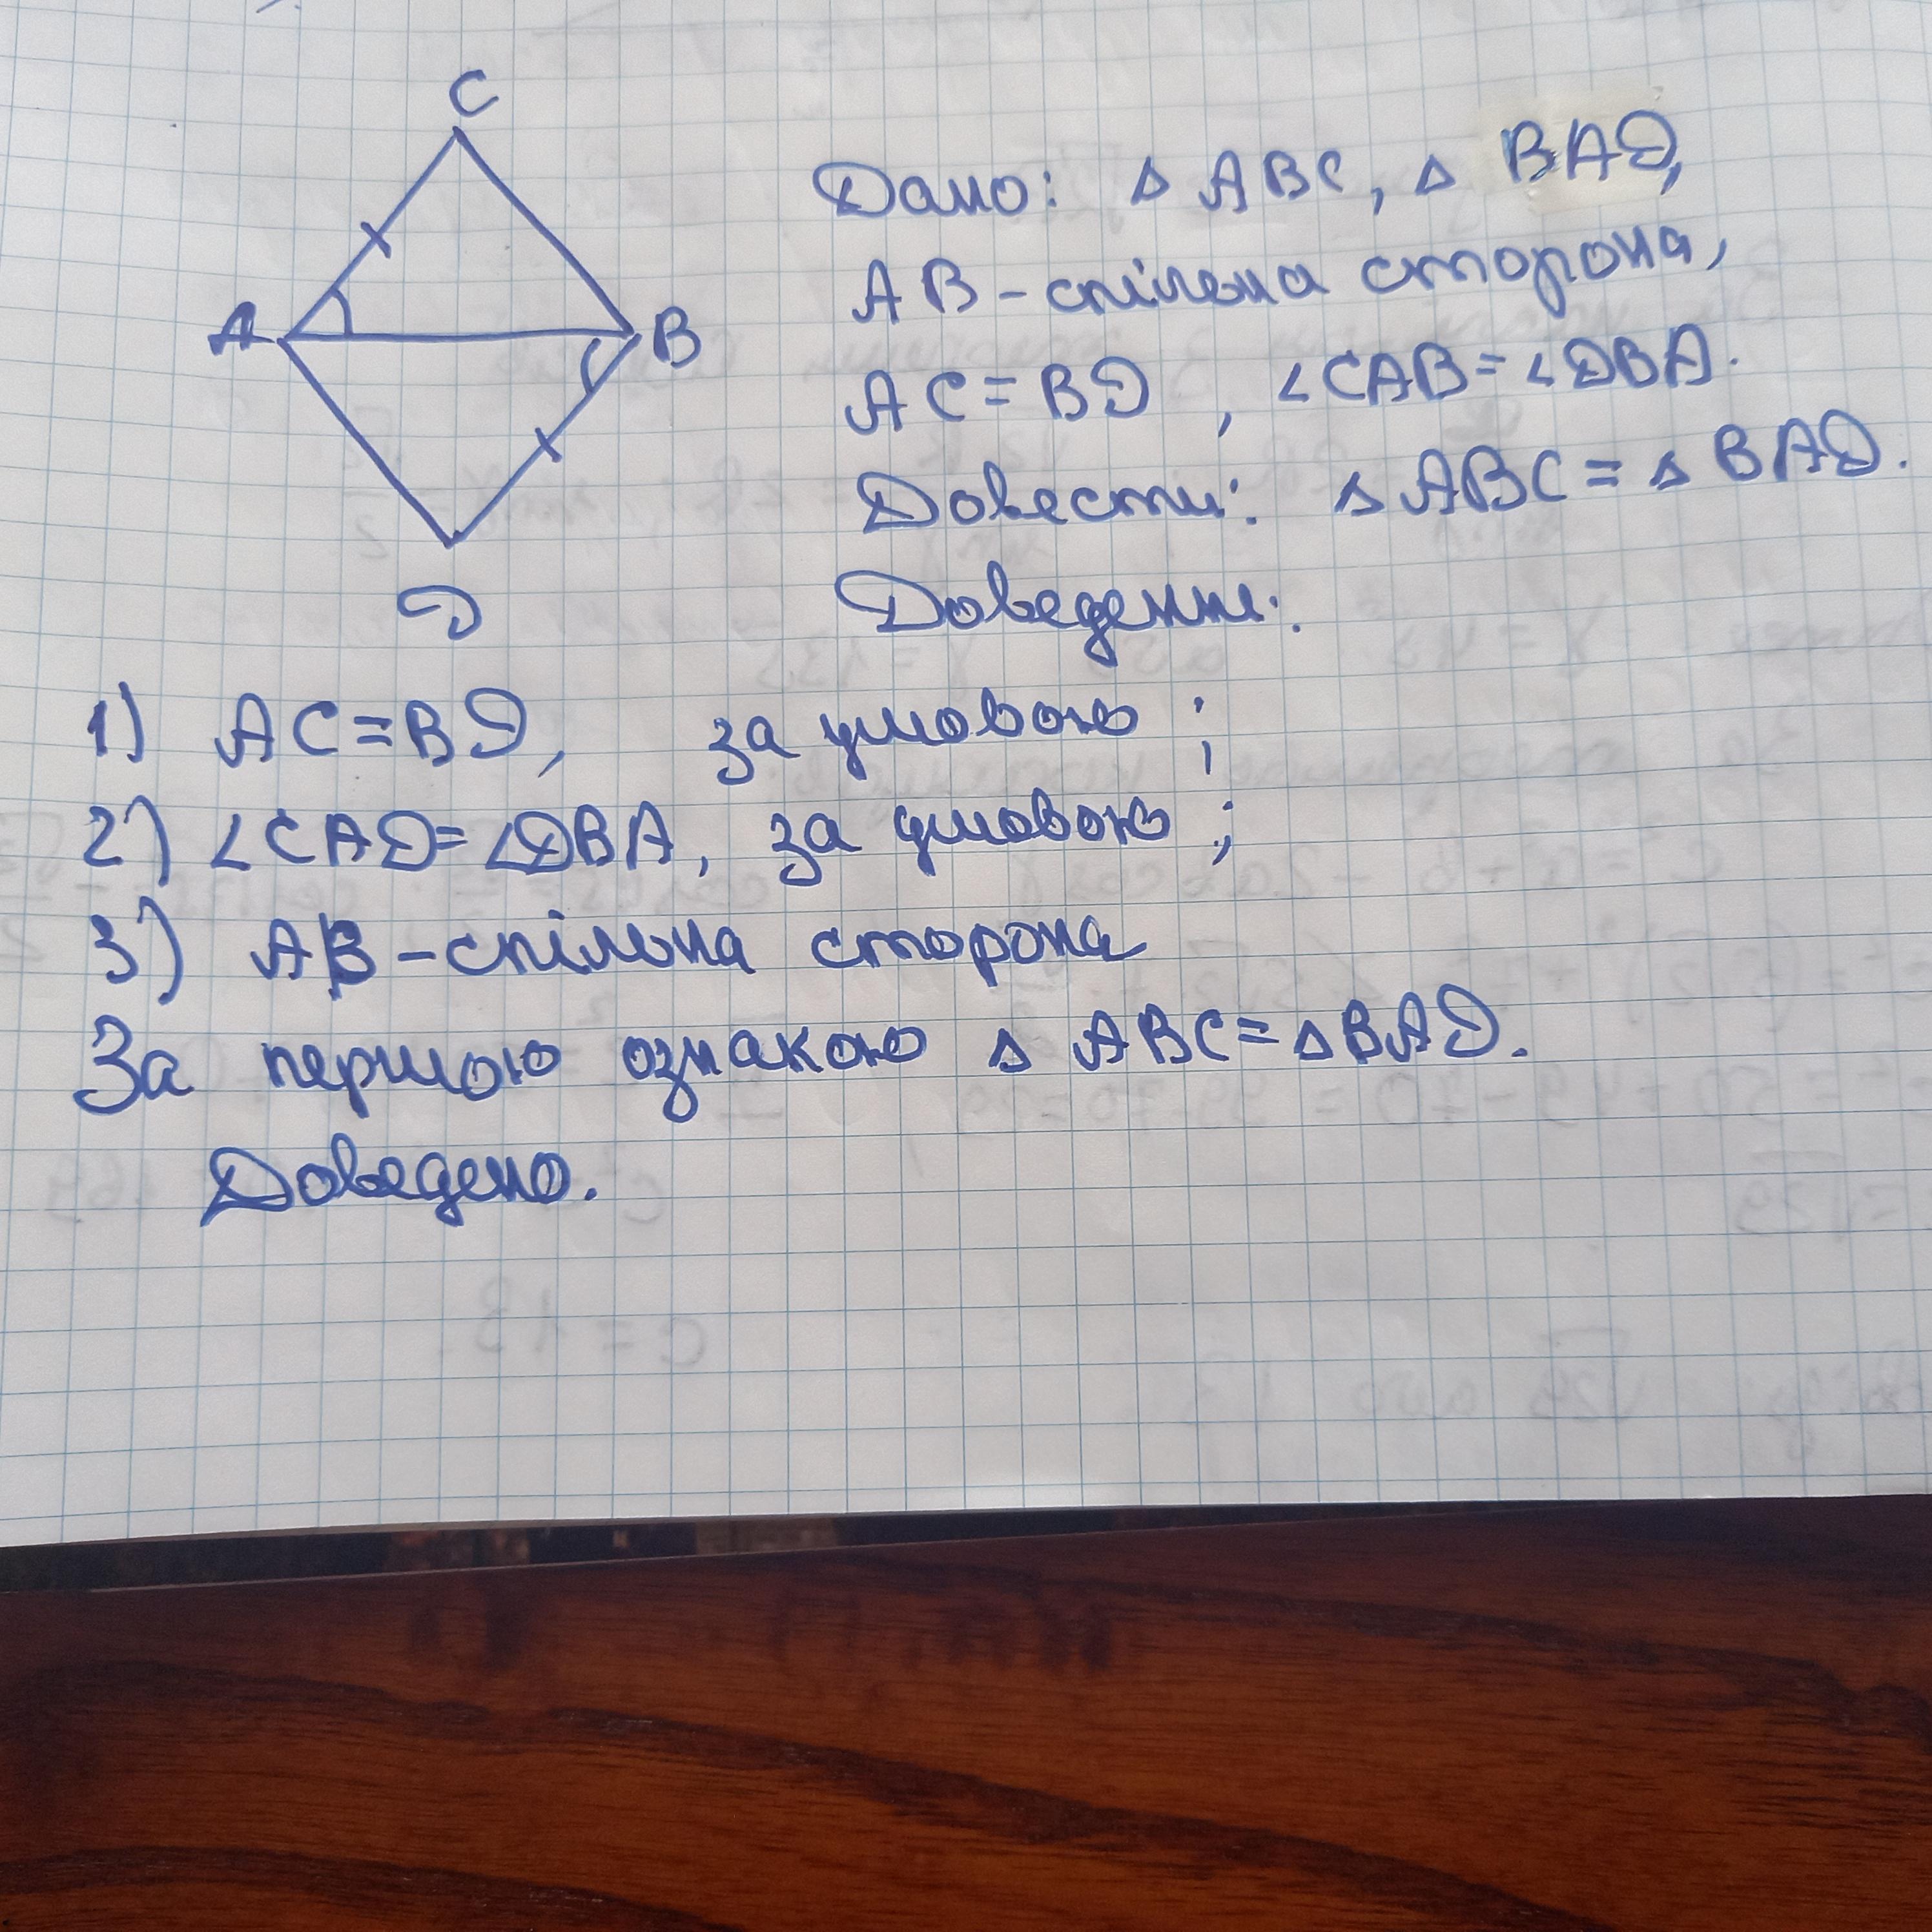 C
A
B
D
Дано: △ ABC, △ BAD,
AB - спільна сторона,
AC = BD, ∠CAB = ∠DBA.
Довести: △ ABC = △ BAD.
Доведення:
1) AC = BD, за умовою;
2) ∠CAD = ∠DBA, за умовою;
3) AB - спільна сторона
За першою ознакою △ ABC = △BAD.
Доведено.